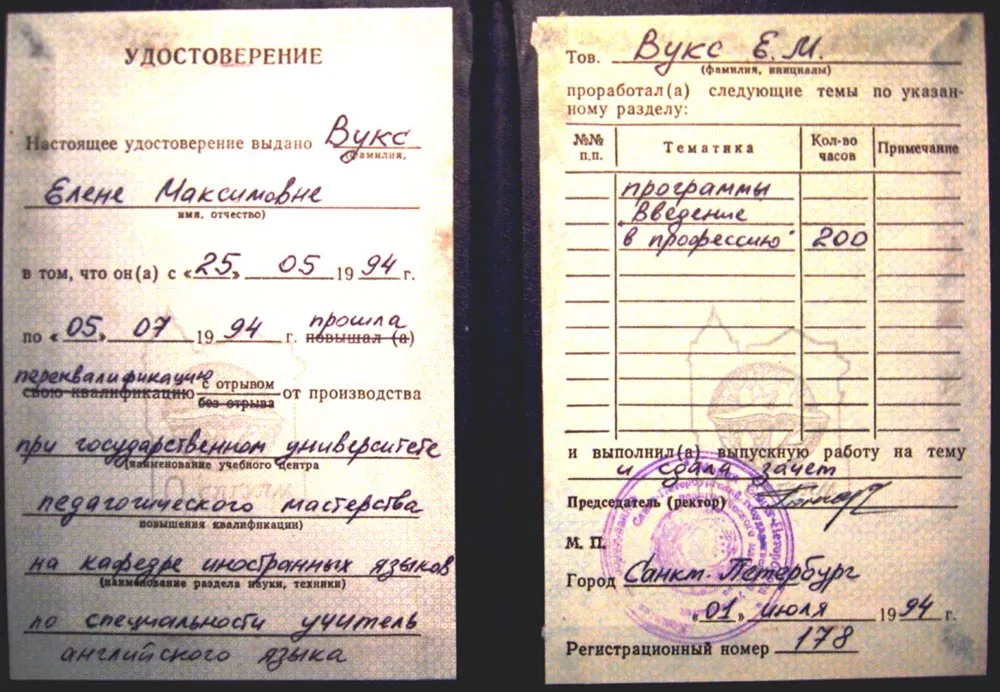 УДОСТОВЕРЕНИЕ
Настоящее удостоверение выдано Вукс
(фамилия,
Елене Максимовне
имя, отчество)
в том, что он(а) с «25» 05 1994 г.
по «05» 07 1994 г. прошла
повышал (а)
переквалификацию
свою квалификацию с отрывом
без отрыва от производства
при государственном университете
(наименование учебного центра
педагогического мастерства
повышения квалификации)
на кафедре иностранных языков
(наименование раздела науки, техники)
по специальности учитель
английского языка
Тов. Вукс Е.М.
(фамилия, инициалы)
проработал(а) следующие темы по указан-
ному разделу:
№№ п.п. Тематика Кол-во часов Примечание
программы
"Введение
в профессию" 200
и выполнил(а) выпускную работу на тему
и сдала зачет
Председатель (ректор)
М. П.
Город Санкт-Петербург
«01» июля 1994 г.
Регистрационный номер 178